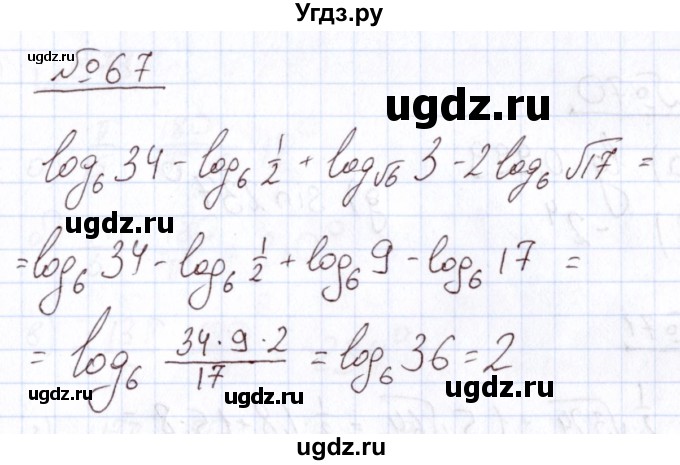 Угдз.ру
№67
ugdz.ru
ugdz.ru
log₆ 34 - log₆ 1/2 + log_√6 3 - 2 log₆ √17 =
ugdz.ru
ugdz.ru
= log₆ 34 - log₆ 1/2 + log₆ 9 - log₆ 17 =
= log₆ (34 · 9 · 2)/17 = log₆ 36 = 2
ugdz.ru
ugdz.ru
ugdz.ru
ugdz.ru